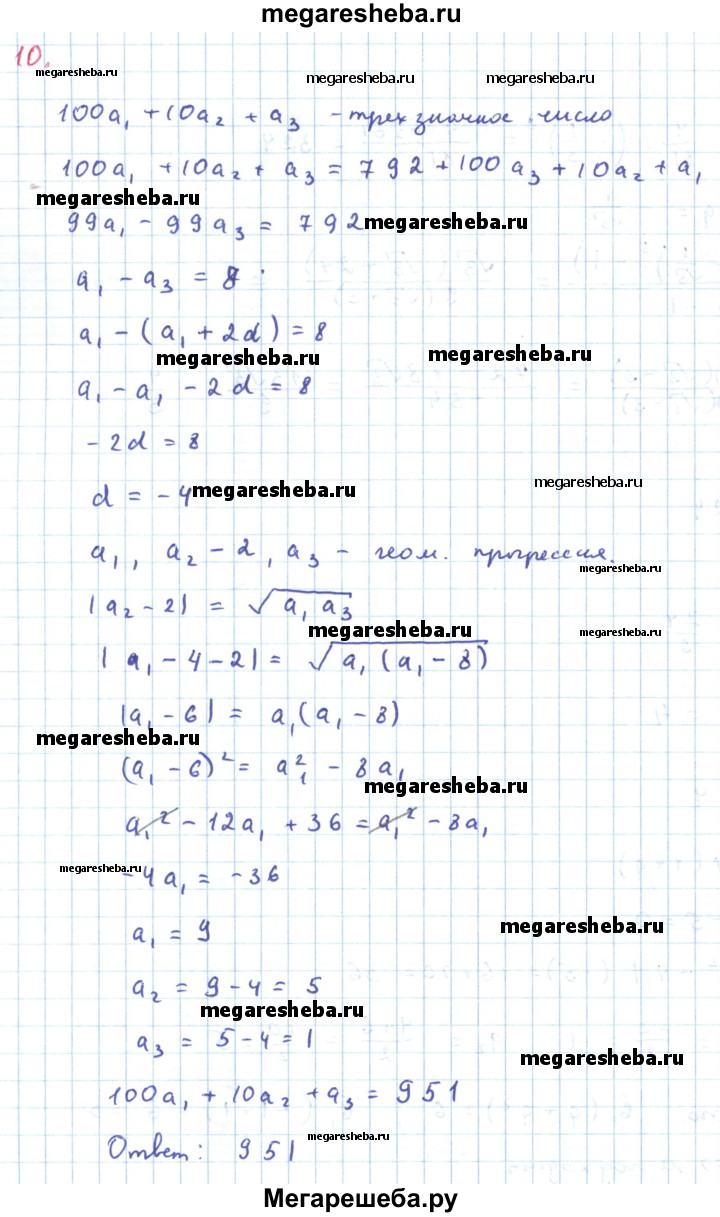 megaresheba.ru
10.
megaresheba.ru
megaresheba.ru megaresheba.ru
100a₁ + 10a₂ + a₃ - трехзначное число
100a₁ + 10a₂ + a₃ = 792 + 100a₃ + 10a₂ + a₁
megaresheba.ru
99a₁ - 99a₃ = 792
megaresheba.ru
a₁ - a₃ = 8
a₁ - (a₁ + 2d) = 8
megaresheba.ru megaresheba.ru
a₁ - a₁ - 2d = 8
-2d = 8
megaresheba.ru
d = -4
megaresheba.ru
a₁, a₂ - 2, a₃ - геом. прогрессия.
megaresheba.ru
|a₂ - 2| = √a₁a₃
megaresheba.ru megaresheba.ru
|a₁ - 4 - 2| = √a₁(a₁ - 8)
|a₁ - 6| = a₁(a₁ - 8)
megaresheba.ru
(a₁ - 6)² = a₁² - 8a₁
megaresheba.ru
a₁² - 12a₁ + 36 = a₁² - 8a₁
megaresheba.ru
-4a₁ = -36
a₁ = 9
megaresheba.ru
a₂ = 9 - 4 = 5
megaresheba.ru
a₃ = 5 - 4 = 1
megaresheba.ru
100a₁ + 10a₂ + a₃ = 951
megaresheba.ru
Ответ: 951
Мегарешеба.ру